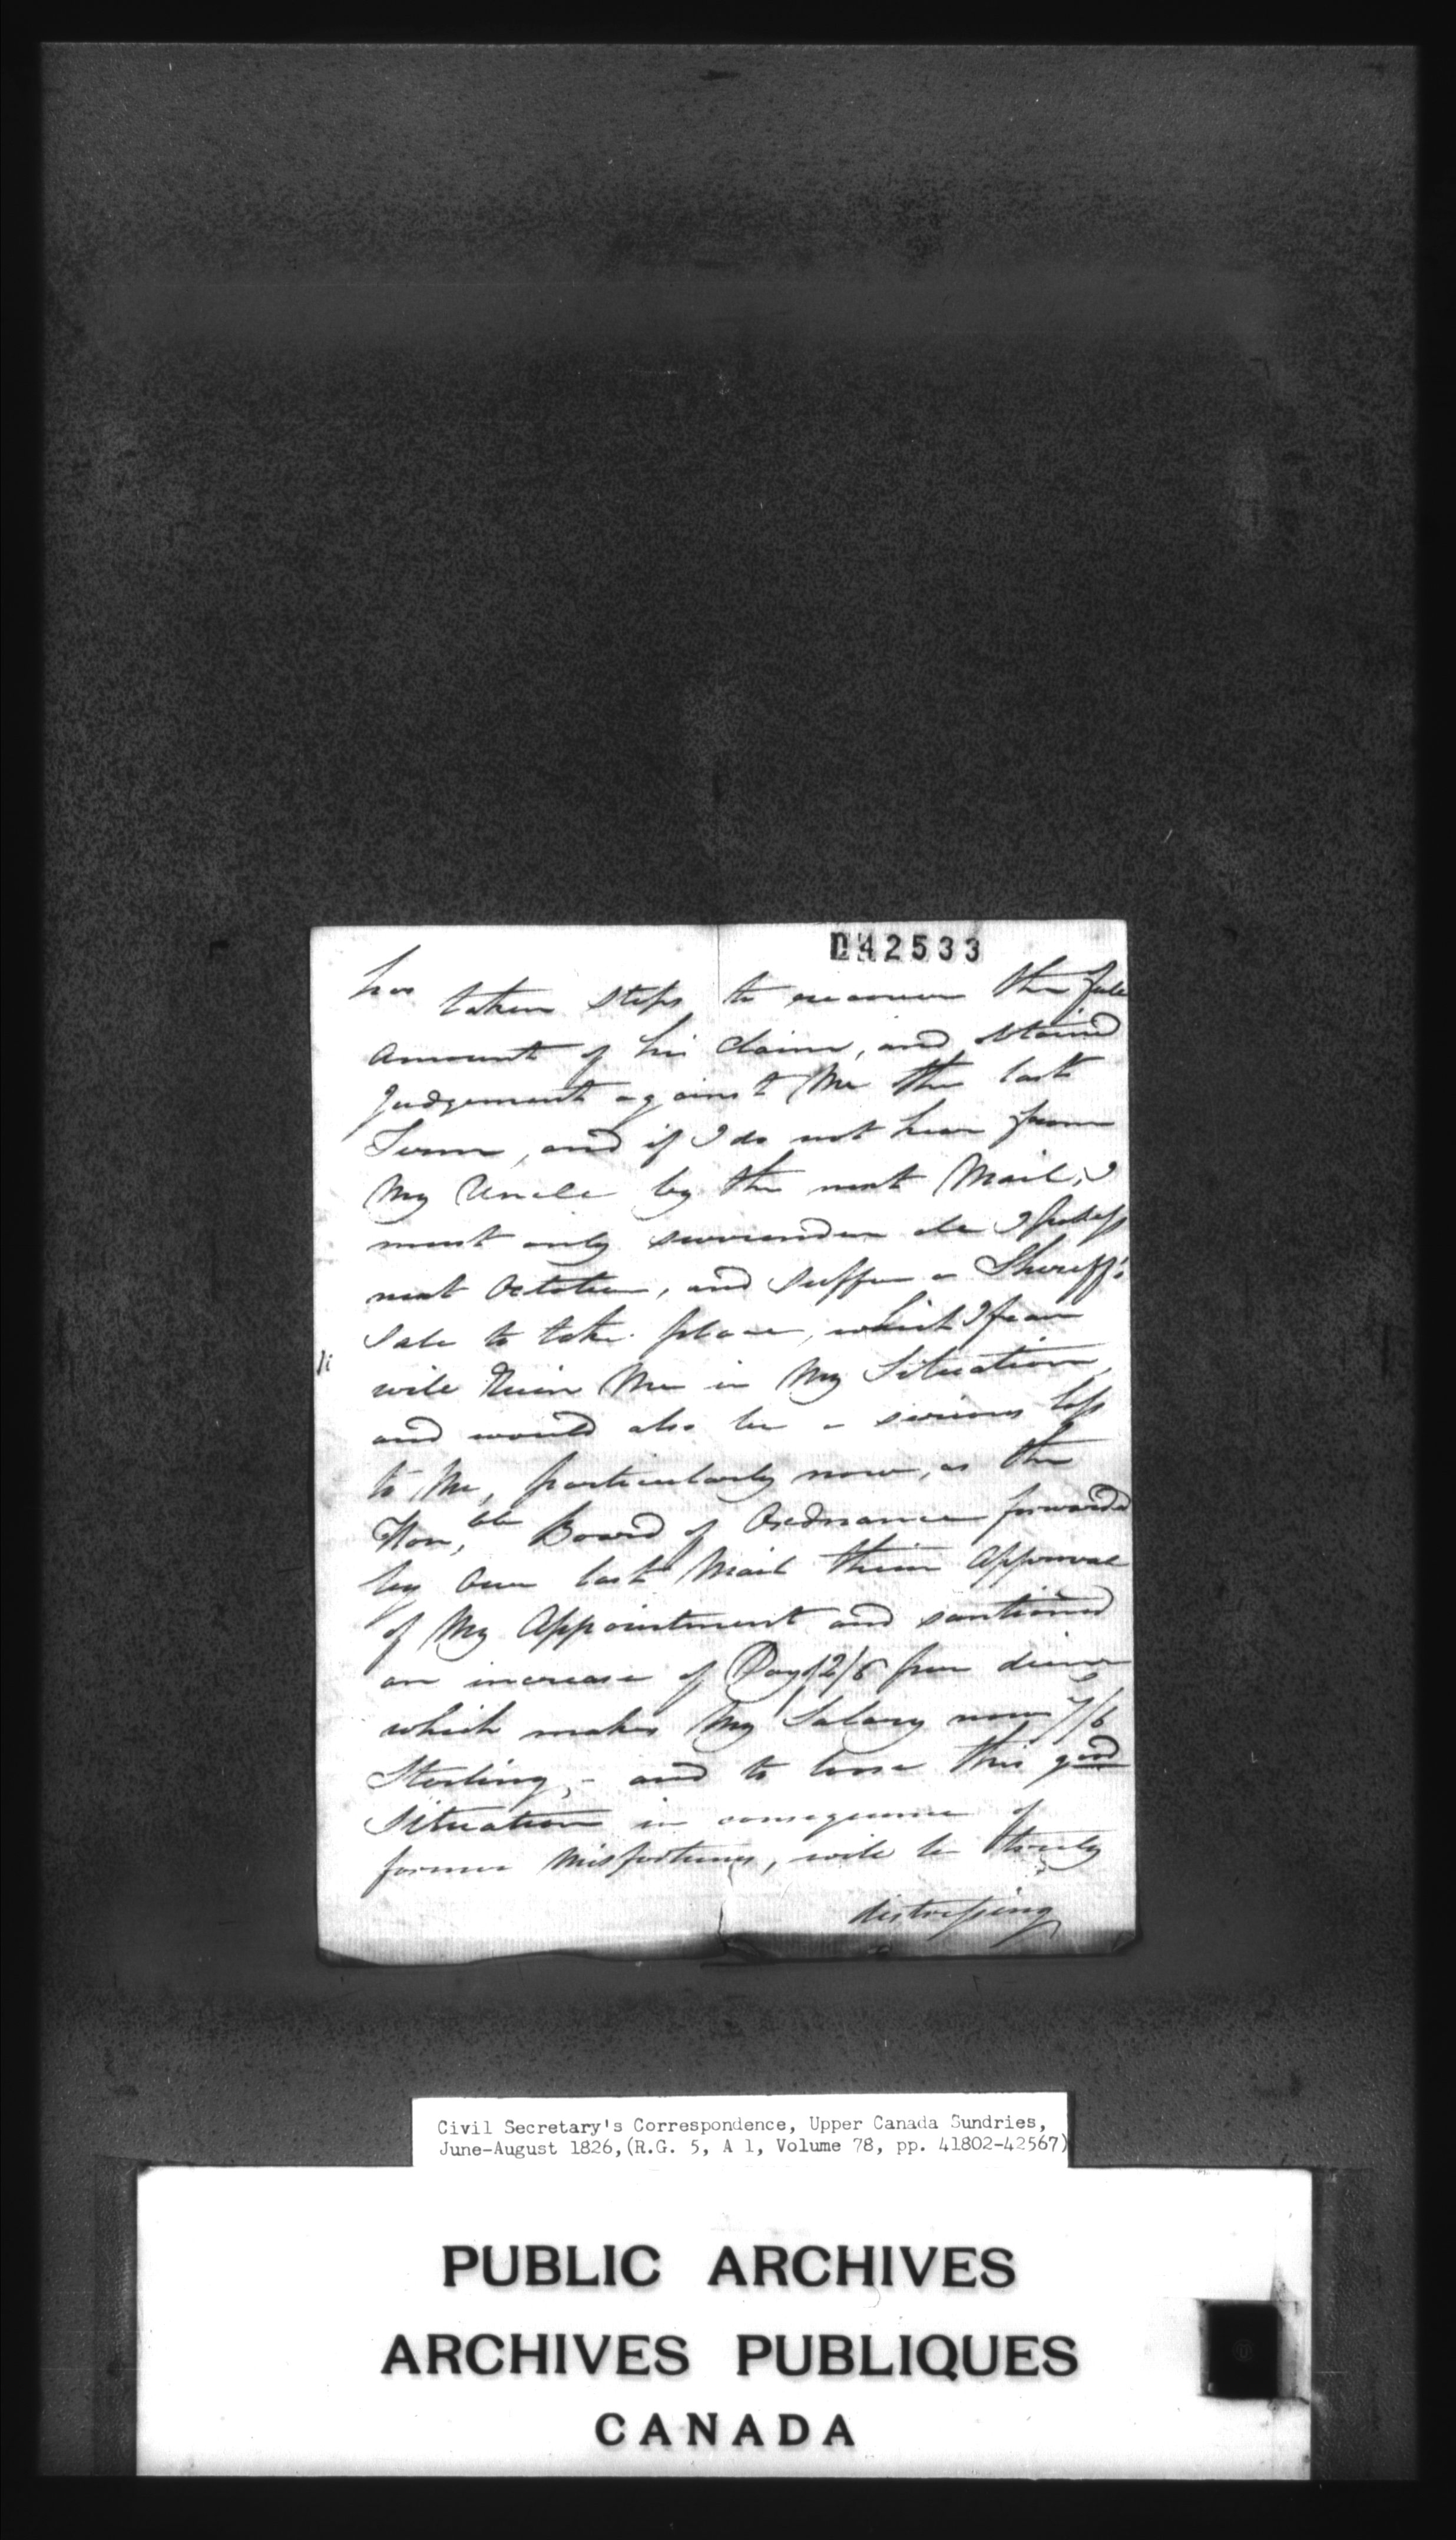 042533
has taken steps to recover the full
amount of his Claim, and obtained
Judgement against Me the last
Term, and if I do not hear from
My Uncle by the next Mail, I
must only surrender all I possess
next October, and suffer a Sheriff's
Sale to take place, which I fear
will Ruin Me in My Situation,
and would also be a serious loss
to Me, particularly now, as the
Hon,ble Board of Ordnance forwarded
by Our last Mail their Approval
of My Appointment and santioned
an increase of Pay of 2/6 per diem
which makes My Salary now 7/6
Sterling, - and to loose this good
Situation in consequence of
former Misfortunes, will be truly
distressing
Civil Secretary's Correspondence, Upper Canada Sundries,
June-August 1826, (R.G. 5, A 1, Volume 78, pp. 41802-42567)
PUBLIC ARCHIVES
ARCHIVES PUBLIQUES
CANADA